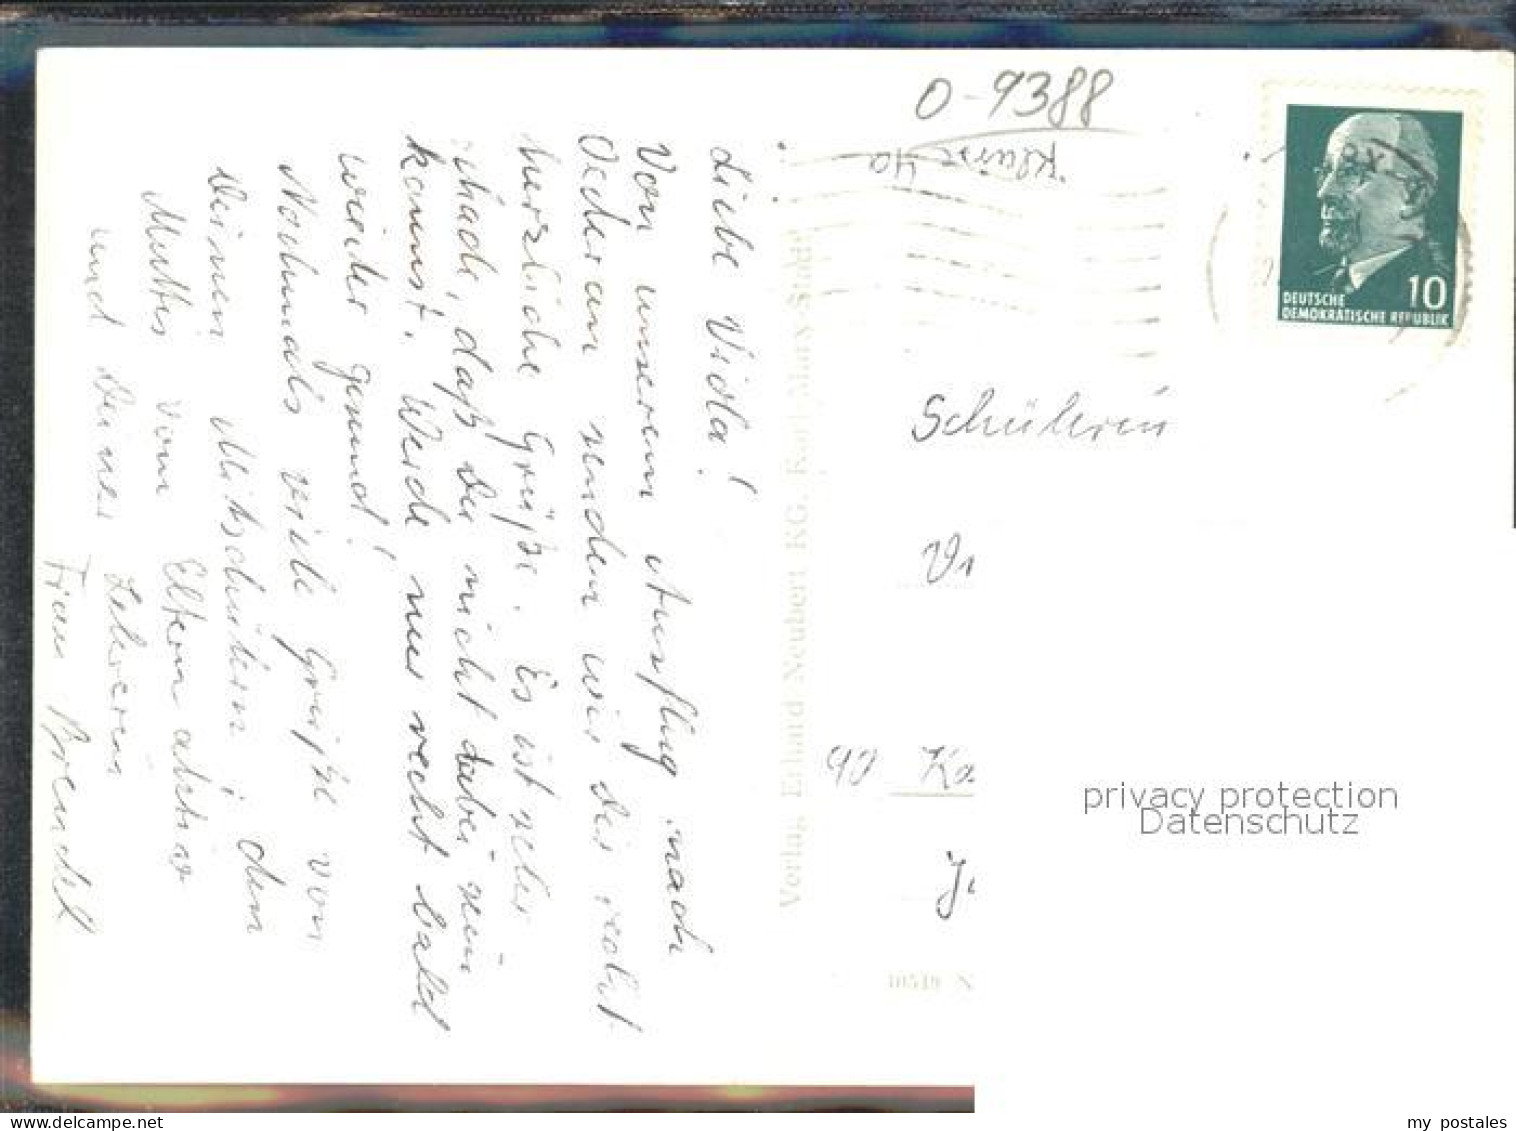 O-9388
Klasse 4a
Liebe Viola!
Von unserem Ausflug nach
Oederan senden wir dir recht
herzliche Grüße. Es ist sehr
schade, daß Du nicht dabei sein
kannst. Werde nur recht bald
wieder gesund!
Nochmals viele Grüße von
Deinen Mitschülern, dem
Mutter vom Elternaktiv
und Deiner Lehrerin
Frau Brendel
Verlag Erhard Neubert KG, Karl-Marx-Stadt
DEUTSCHE
DEMOKRATISCHE REPUBLIK
10
Schülerin
Vi
90 Ka
10519 N
privacy protection
Datenschutz
delcampe.net
my postales